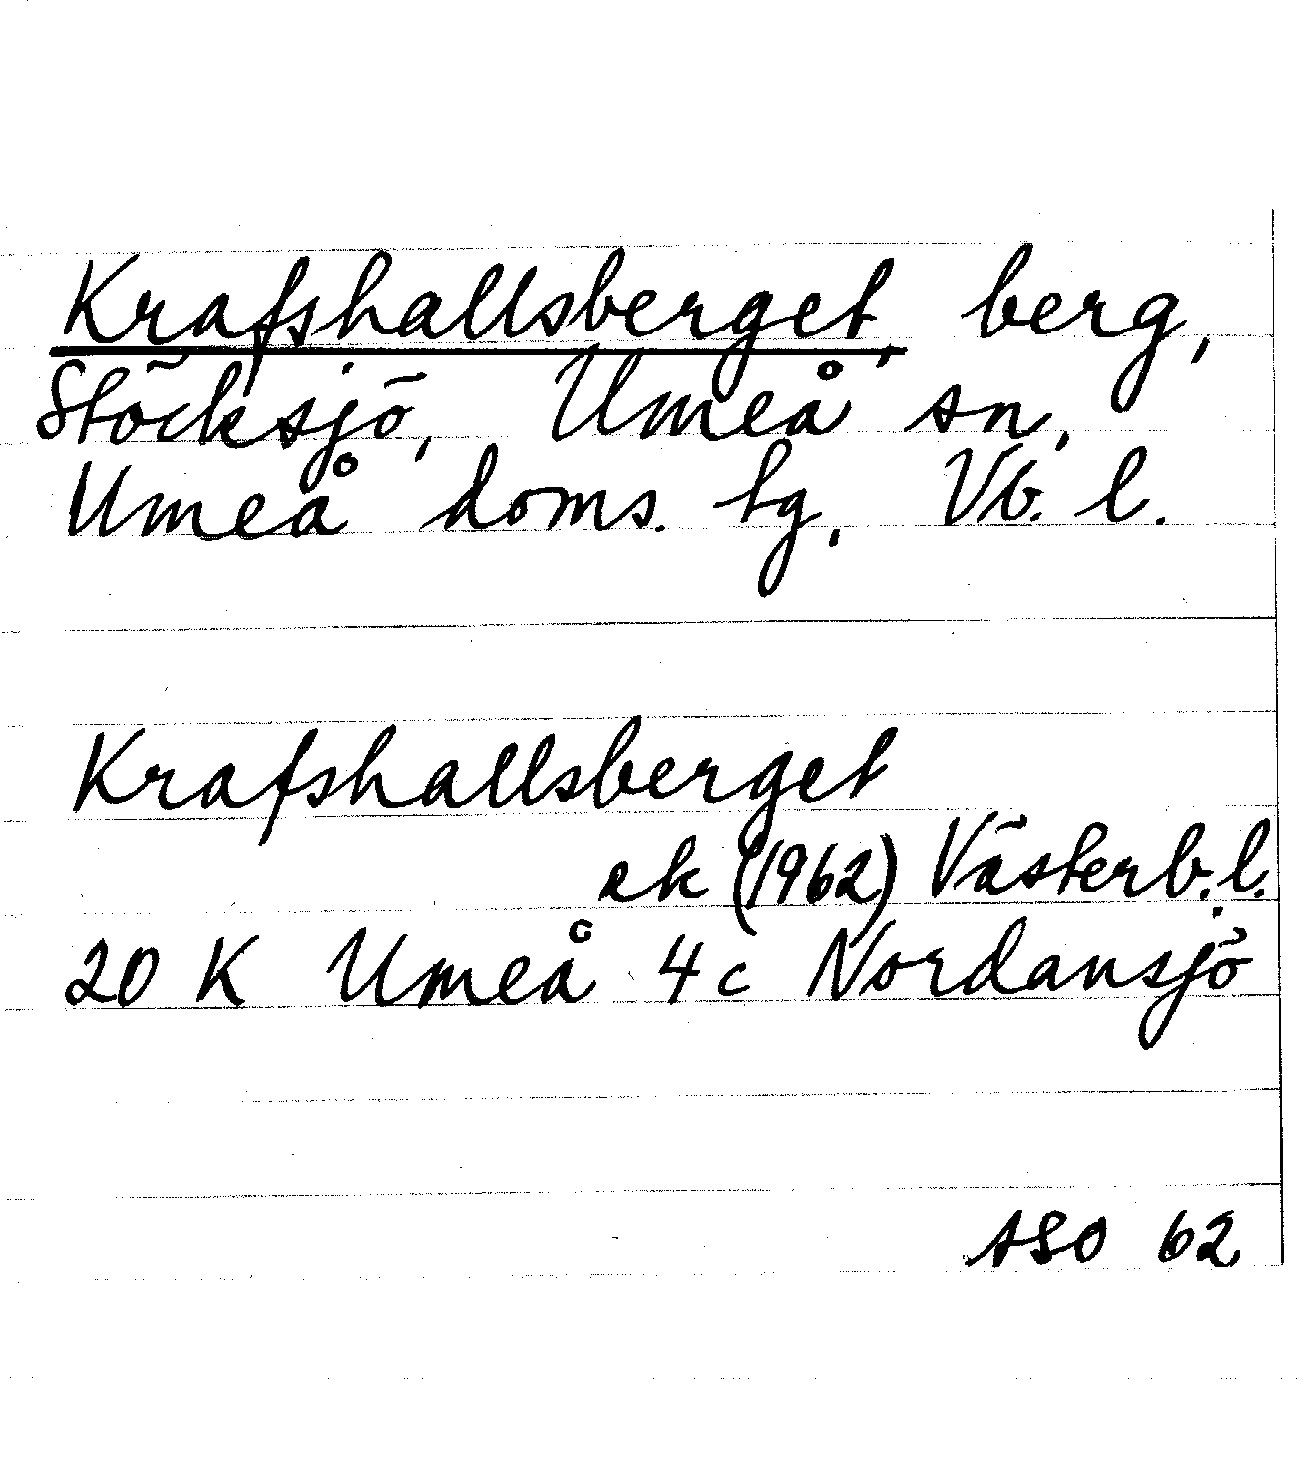 Krafshallsberget, berg,
Stöcksjö, Umeå sn,
Umeå doms. tg, Vb. l.
Krafshallsberget
ek (1962) Västerb. l.
20 K Umeå 4 c Nordansjö
ASO 62